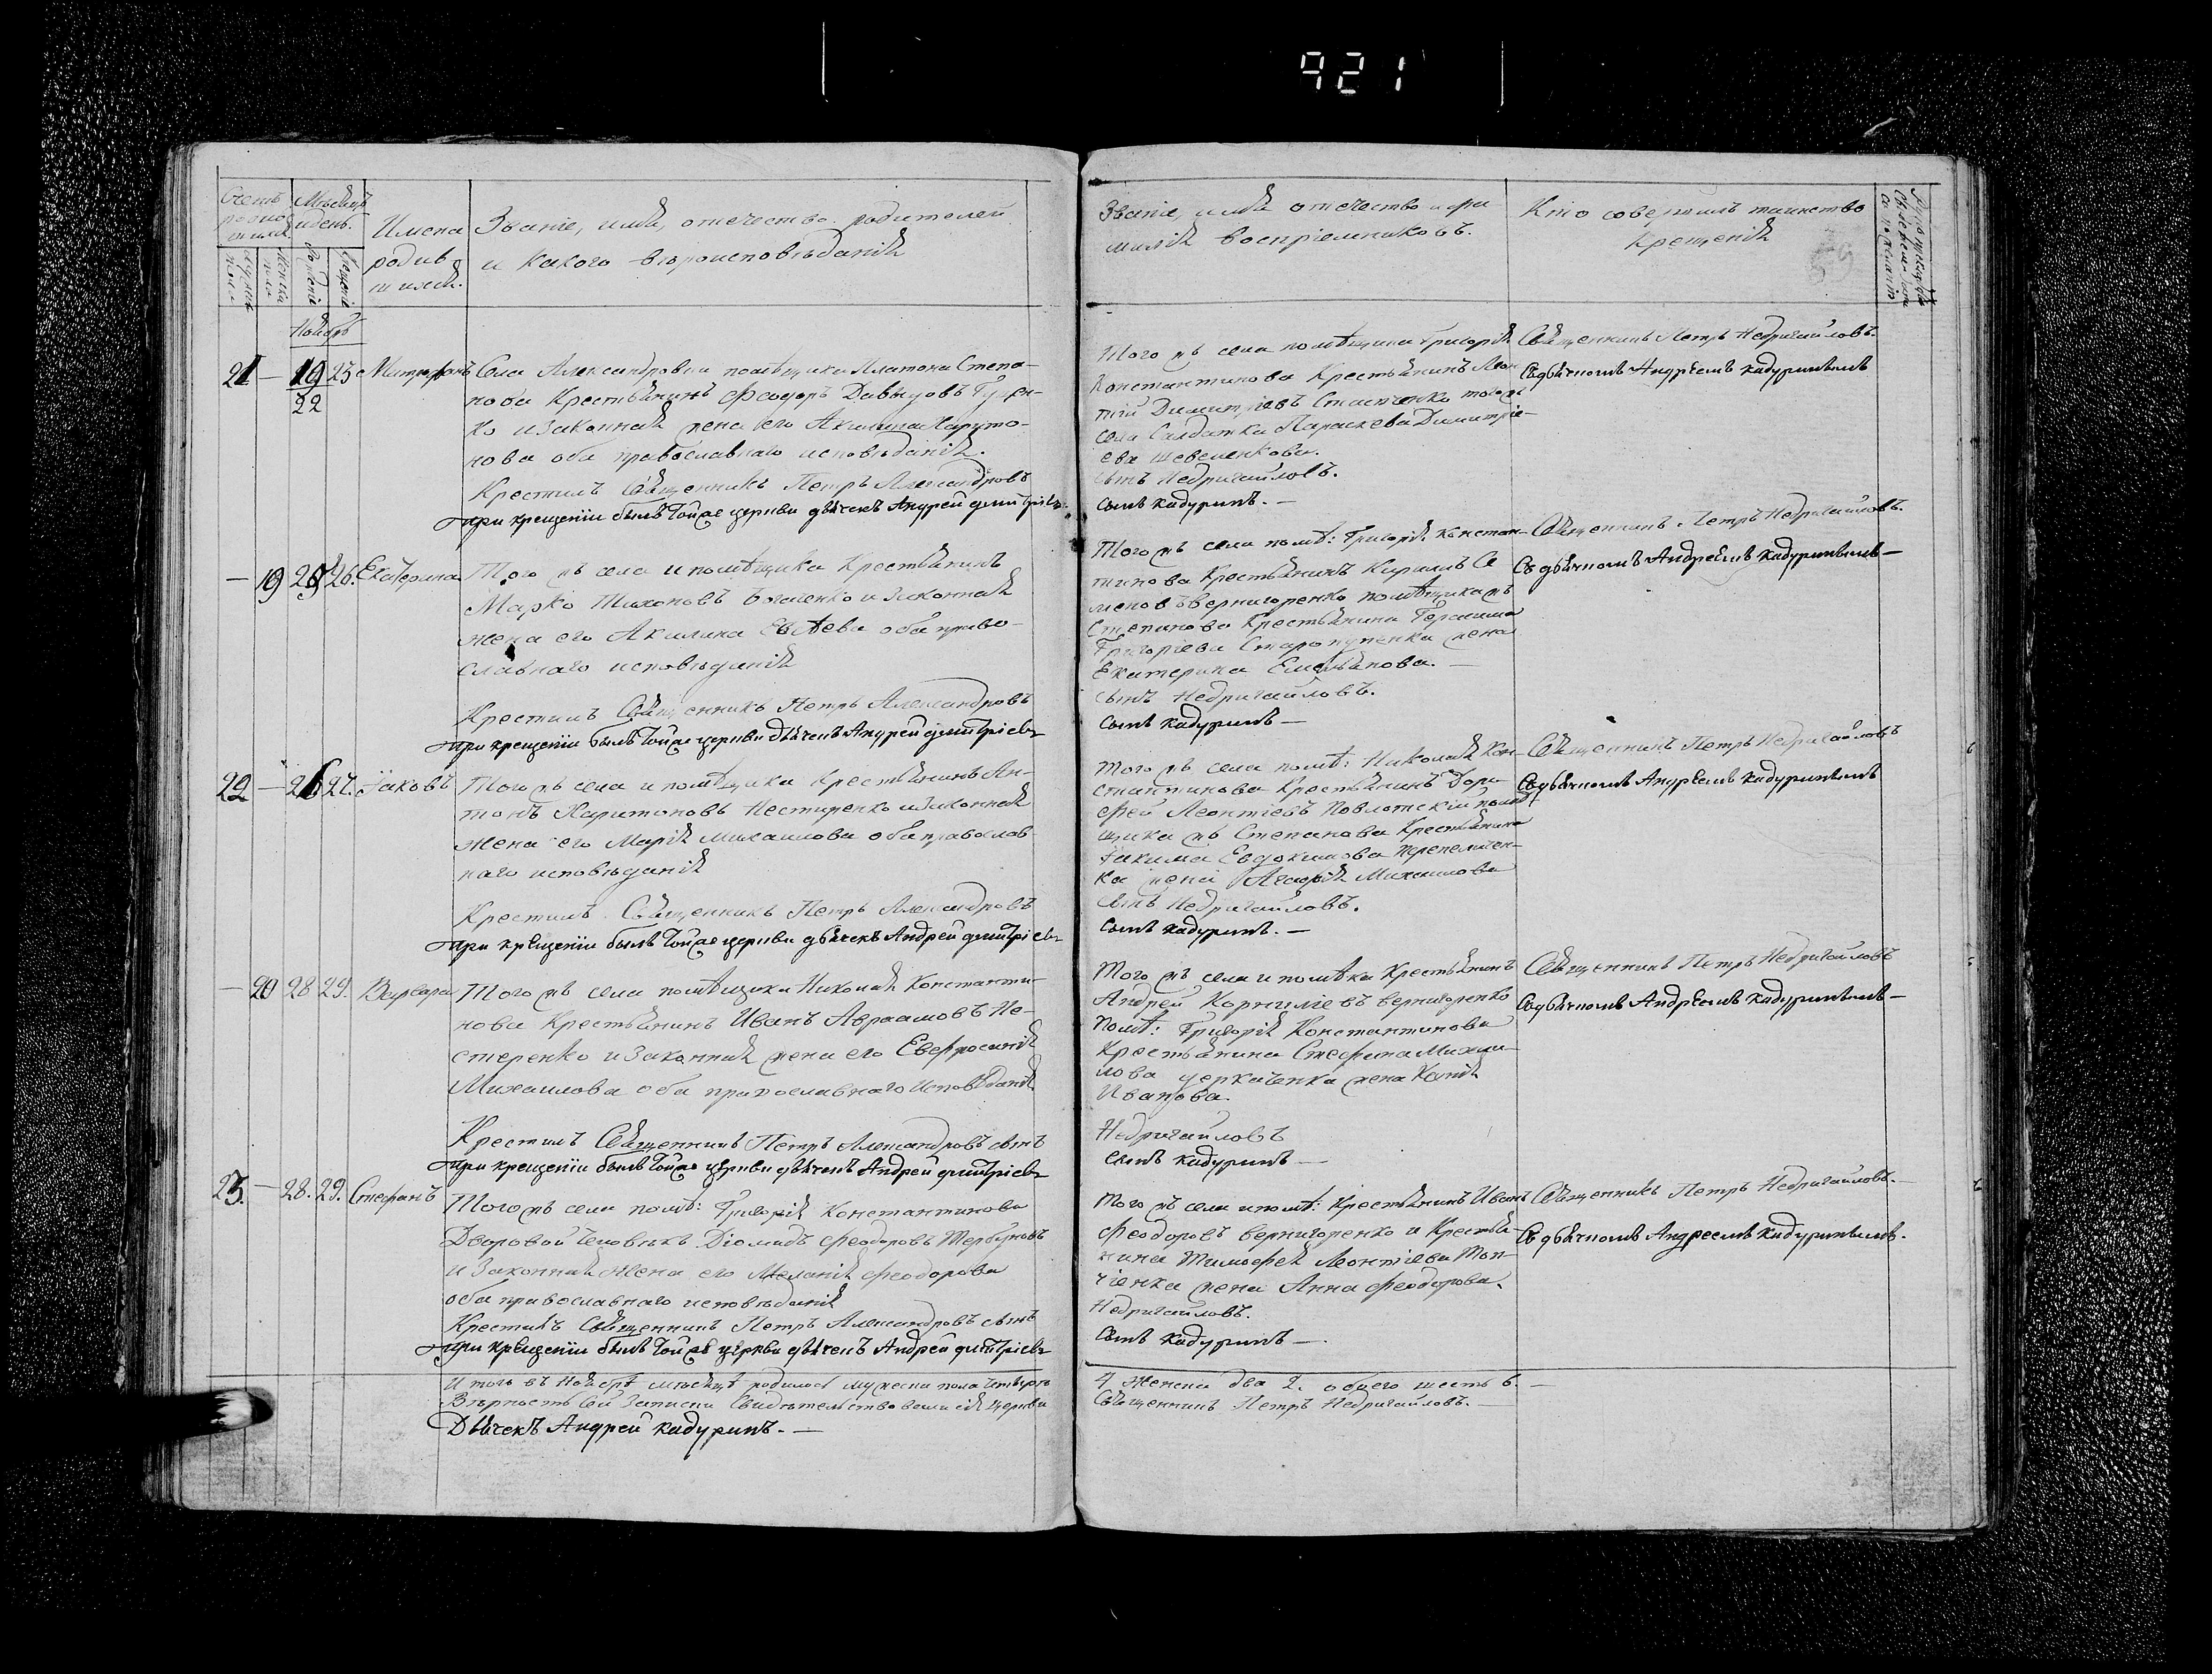 921
Счетъ родив шихся
Мѣсяцъ и день.
Мужска пола
Женска пола
Рожденіе
Крещеніе
Имена родив шихся.
Званіе, имя, отечество родителей
и какого вѣроисповѣданія
Ноябрь
21 — 19 23 Митрофанъ Села Александровки помѣщика Платона Степа-
22
нова Крестьянинъ Феодоръ Давыдовъ
ко и законная жена его Акилина Харито-
нова оба православнаго исповѣданія.
Крестилъ Священникъ Петръ Александровъ
При крещеніи былъ тойже церкви дьячекъ Андрей дмитріевъ
— 19 25 26. Екатерина Того жъ села и помѣщика Крестьянинъ
Марко Тихоновъ и законная
жена его Акилина Евсѣева оба право-
славнаго исповѣданія
Крестилъ Священникъ Петръ Александровъ
При крещеніи былъ тойже церкви дьячекъ Андрей дмитріевъ
22 — 26 27. Іаковъ Того жъ села и помѣщика Крестьянинъ Ан-
тонъ Харитоновъ Нестеренко и законная
жена его Марія Михаилова оба православ
наго исповѣданія
Крестилъ Священникъ Петръ Александровъ
При крещеніи былъ тойже церкви дьячекъ Андрей дмитріевъ
— 20 28 29. Варвара Того жъ села помѣщика Николая Константи-
нова Крестьянинъ Иванъ Авраамовъ Не-
стеренко и законная жена его Евфросинія
Михаилова оба православнаго Исповѣданія
Крестилъ Священникъ Петръ Александровъ сынъ
При крещеніи былъ тойже церкви дьячекъ Андрей дмитріевъ
23. — 28. 29. Стефанъ
Того жъ села помѣ: Григорія Константинова
Дворовой Человѣкъ Діомидъ Феодоровъ
и Законная жена его Меланія Феодорова
оба православнаго исповѣданія
Крестилъ Священникъ Петръ Александровъ сынъ
При крещеніи былъ тойже церкви дьячекъ Андрей дмитріевъ
Итого въ Ноябрѣ мѣсяцѣ родилось мужеска пола четверо
Вѣрность сей Записки Свидѣтельствовали сія церкви
Дьячекъ Андрей Кадуринъ. —
Званіе, имя отечество и фа
милія воспріемниковъ.
Кто совершилъ таинство
Крещенія
59
Того жъ села помѣщика Григорія
Константинова Крестьянинъ Леон
тій Димитріевъ тогожъ
села Салдатка Параскева Димитріе-
ва Шевелнкова.
сынъ Недригайловъ.
сынъ Кадуринъ. —
Священникъ Петръ Недригайловъ.
Съ дьячкомъ Андреемъ Кадуринымъ
Того жъ села помѣ: Григорія Констан-
тинова Крестьянинъ Кирилъ Се
меновъ Вернигоренко помѣщика жъ
Степанова Крестьянина Герасима
Григорьева Старопупенка жена
Екатерина Емельянова. —
сынъ Недригайловъ.
сынъ Кадуринъ —
Священникъ Петръ Недригайловъ.
Съ дьячкомъ Андреемъ Кадуринымъ —
Того жъ села помѣ: Николая Кон-
стантинова Крестьянинъ Доро
фей Леонтіевъ помѣ
щика жъ Степанова Крестьянина
Іакима Евдокимова Перепелиен-
ка жена Агафія Михаилова
сынъ Недригайловъ.
сынъ Кадуринъ. —
Священникъ Петръ Недригайловъ
Съ дьячкомъ Андреемъ Кадуринымъ
Того жъ села и помѣка Крестьянинъ
Андрей Корниліевъ Вернигоренко
помѣ: Григорія Константинова
Крестьянина Стефана Михаи-
лова Черкаченка жена Ксенія
Иванова.
Недригайловъ
сынъ Кадуринъ —
Священникъ Петръ Недригайловъ
Съ дьячкомъ Андреемъ Кадуринымъ —
Того жъ села и помѣ: Крестьянинъ Иванъ
Феодоровъ Вернигоренко и Крестья-
нина Тимофея Леонтіева
жена Анна Феодорова.
Недригайловъ.
сынъ Кадуринъ —
Священникъ Петръ Недригайловъ. —
Съ дьячкомъ Андреемъ Кадуринымъ.
4 женска два 2. обоего шесть 6. —
Священникъ Петръ Недригайловъ. —